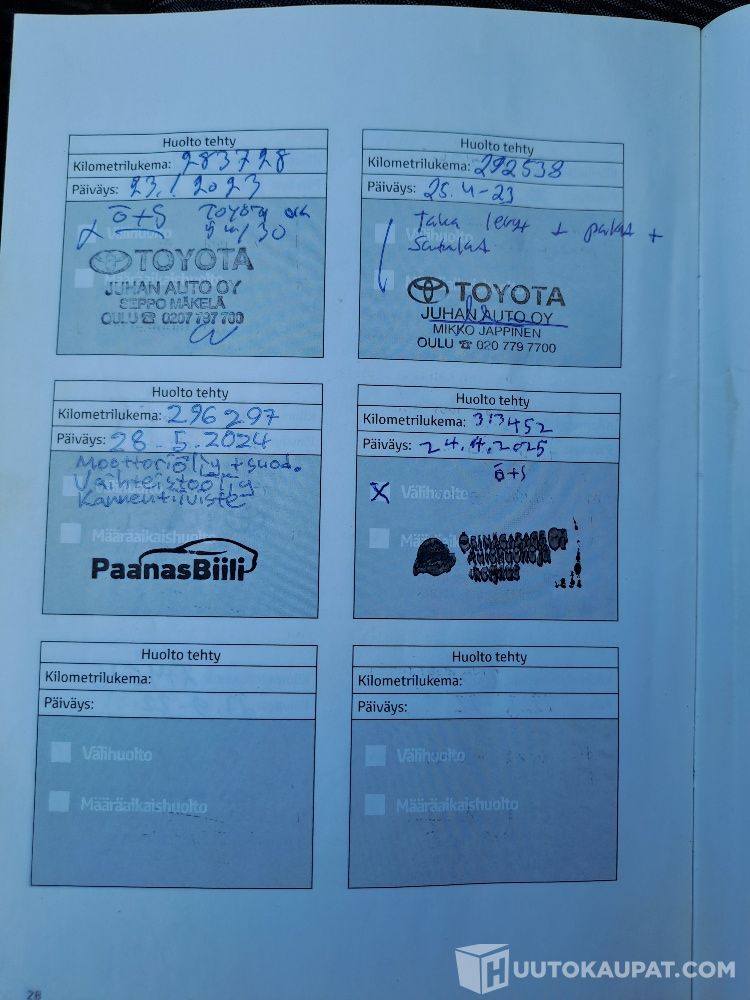 Huolto tehty
Kilometrilukema: 283728
Päiväys: 23.1 2023
ö+S Toyota
5w/30
TOYOTA
JUHAN AUTO OY
SEPPO MÄKELÄ
OULU ☎ 0207 797 700
Huolto tehty
Kilometrilukema: 292538
Päiväys: 25.4-23
Taka levyt + palat +
Satulat
TOYOTA
JUHAN AUTO OY
MIKKO JAPPINEN
OULU ☎ 020 779 7700
Huolto tehty
Kilometrilukema: 296297
Päiväys: 28.5.2024
Moottoriöljy + suod.
Vaihteistoöljy
Kannentiiviste
PaanasBiili
Huolto tehty
Kilometrilukema: 313452
Päiväys: 24.4.2025
ö+S
X Välihuolto
Huolto tehty
Kilometrilukema:
Päiväys:
Välihuolto
Määräaikaishuolto
Huolto tehty
Kilometrilukema:
Päiväys:
Välihuolto
Määräaikaishuolto
28
HUUTOKAUPAT.COM